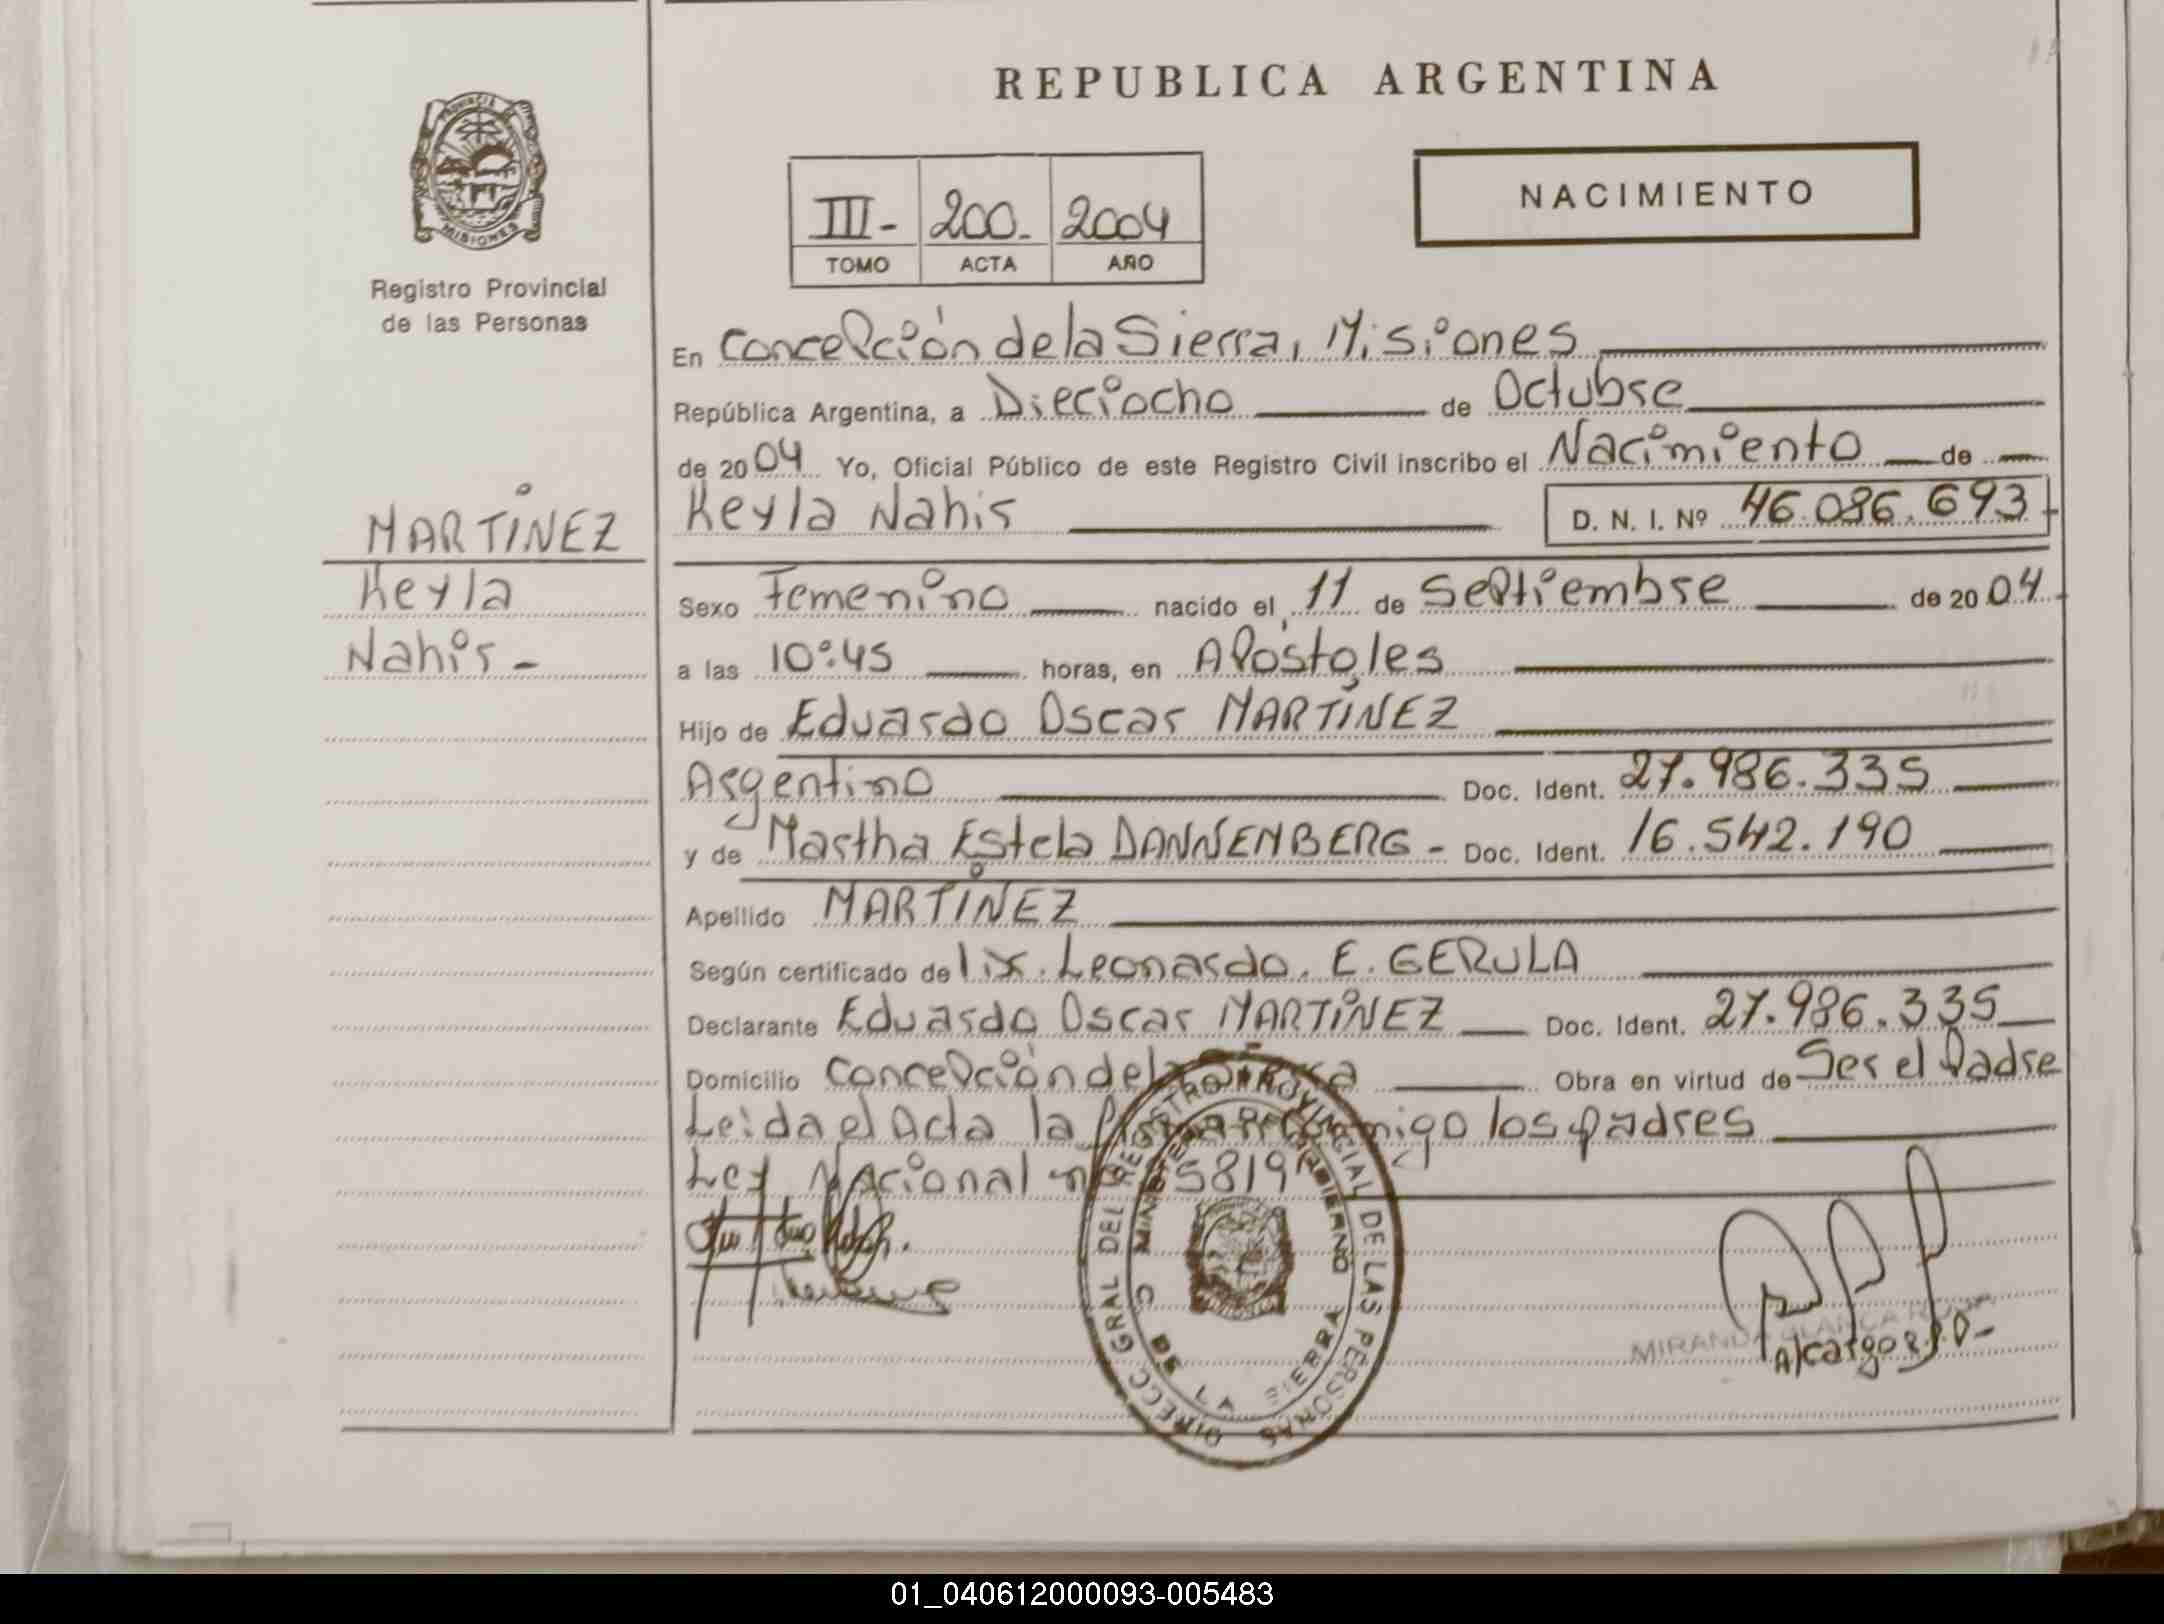 REPUBLICA ARGENTINA
PROVINCIA
MISIONES
Registro Provincial
de las Personas
III- 200- 2004
TOMO ACTA AÑO
NACIMIENTO
En Concepción de la Sierra, Misiones
República Argentina, a Dieciocho de Octubre
de 2004 Yo, Oficial Público de este Registro Civil inscribo el Nacimiento de
Keyla Nahir D. N. I. Nº 46.086.693
MARTÍNEZ
Keyla
Nahir -
Sexo Femenino nacido el 11 de Septiembre de 2004
a las 10:45 horas, en Apóstoles
Hijo de Eduardo Oscar MARTÍNEZ
Argentino Doc. Ident. 27.986.335
y de Martha Estela DANNENBERG - Doc. Ident. 16.542.190
Apellido MARTÍNEZ
Según certificado de Leonardo. E. GERULA
Declarante Eduardo Oscar MARTÍNEZ Doc. Ident. 27.986.335
Domicilio Concepción de la Obra en virtud de Ser el Padre
Leida el Acta la los padres
Ley Nacional 5819
DIRECC GRAL DEL REGISTRO PROVINCIAL DE LAS PERSONAS
MINISTERIO DE GOBIERNO
C DE LA SIERRA
MIRANDA BLANCA
A/cargo R.P.D-
01_040612000093-005483